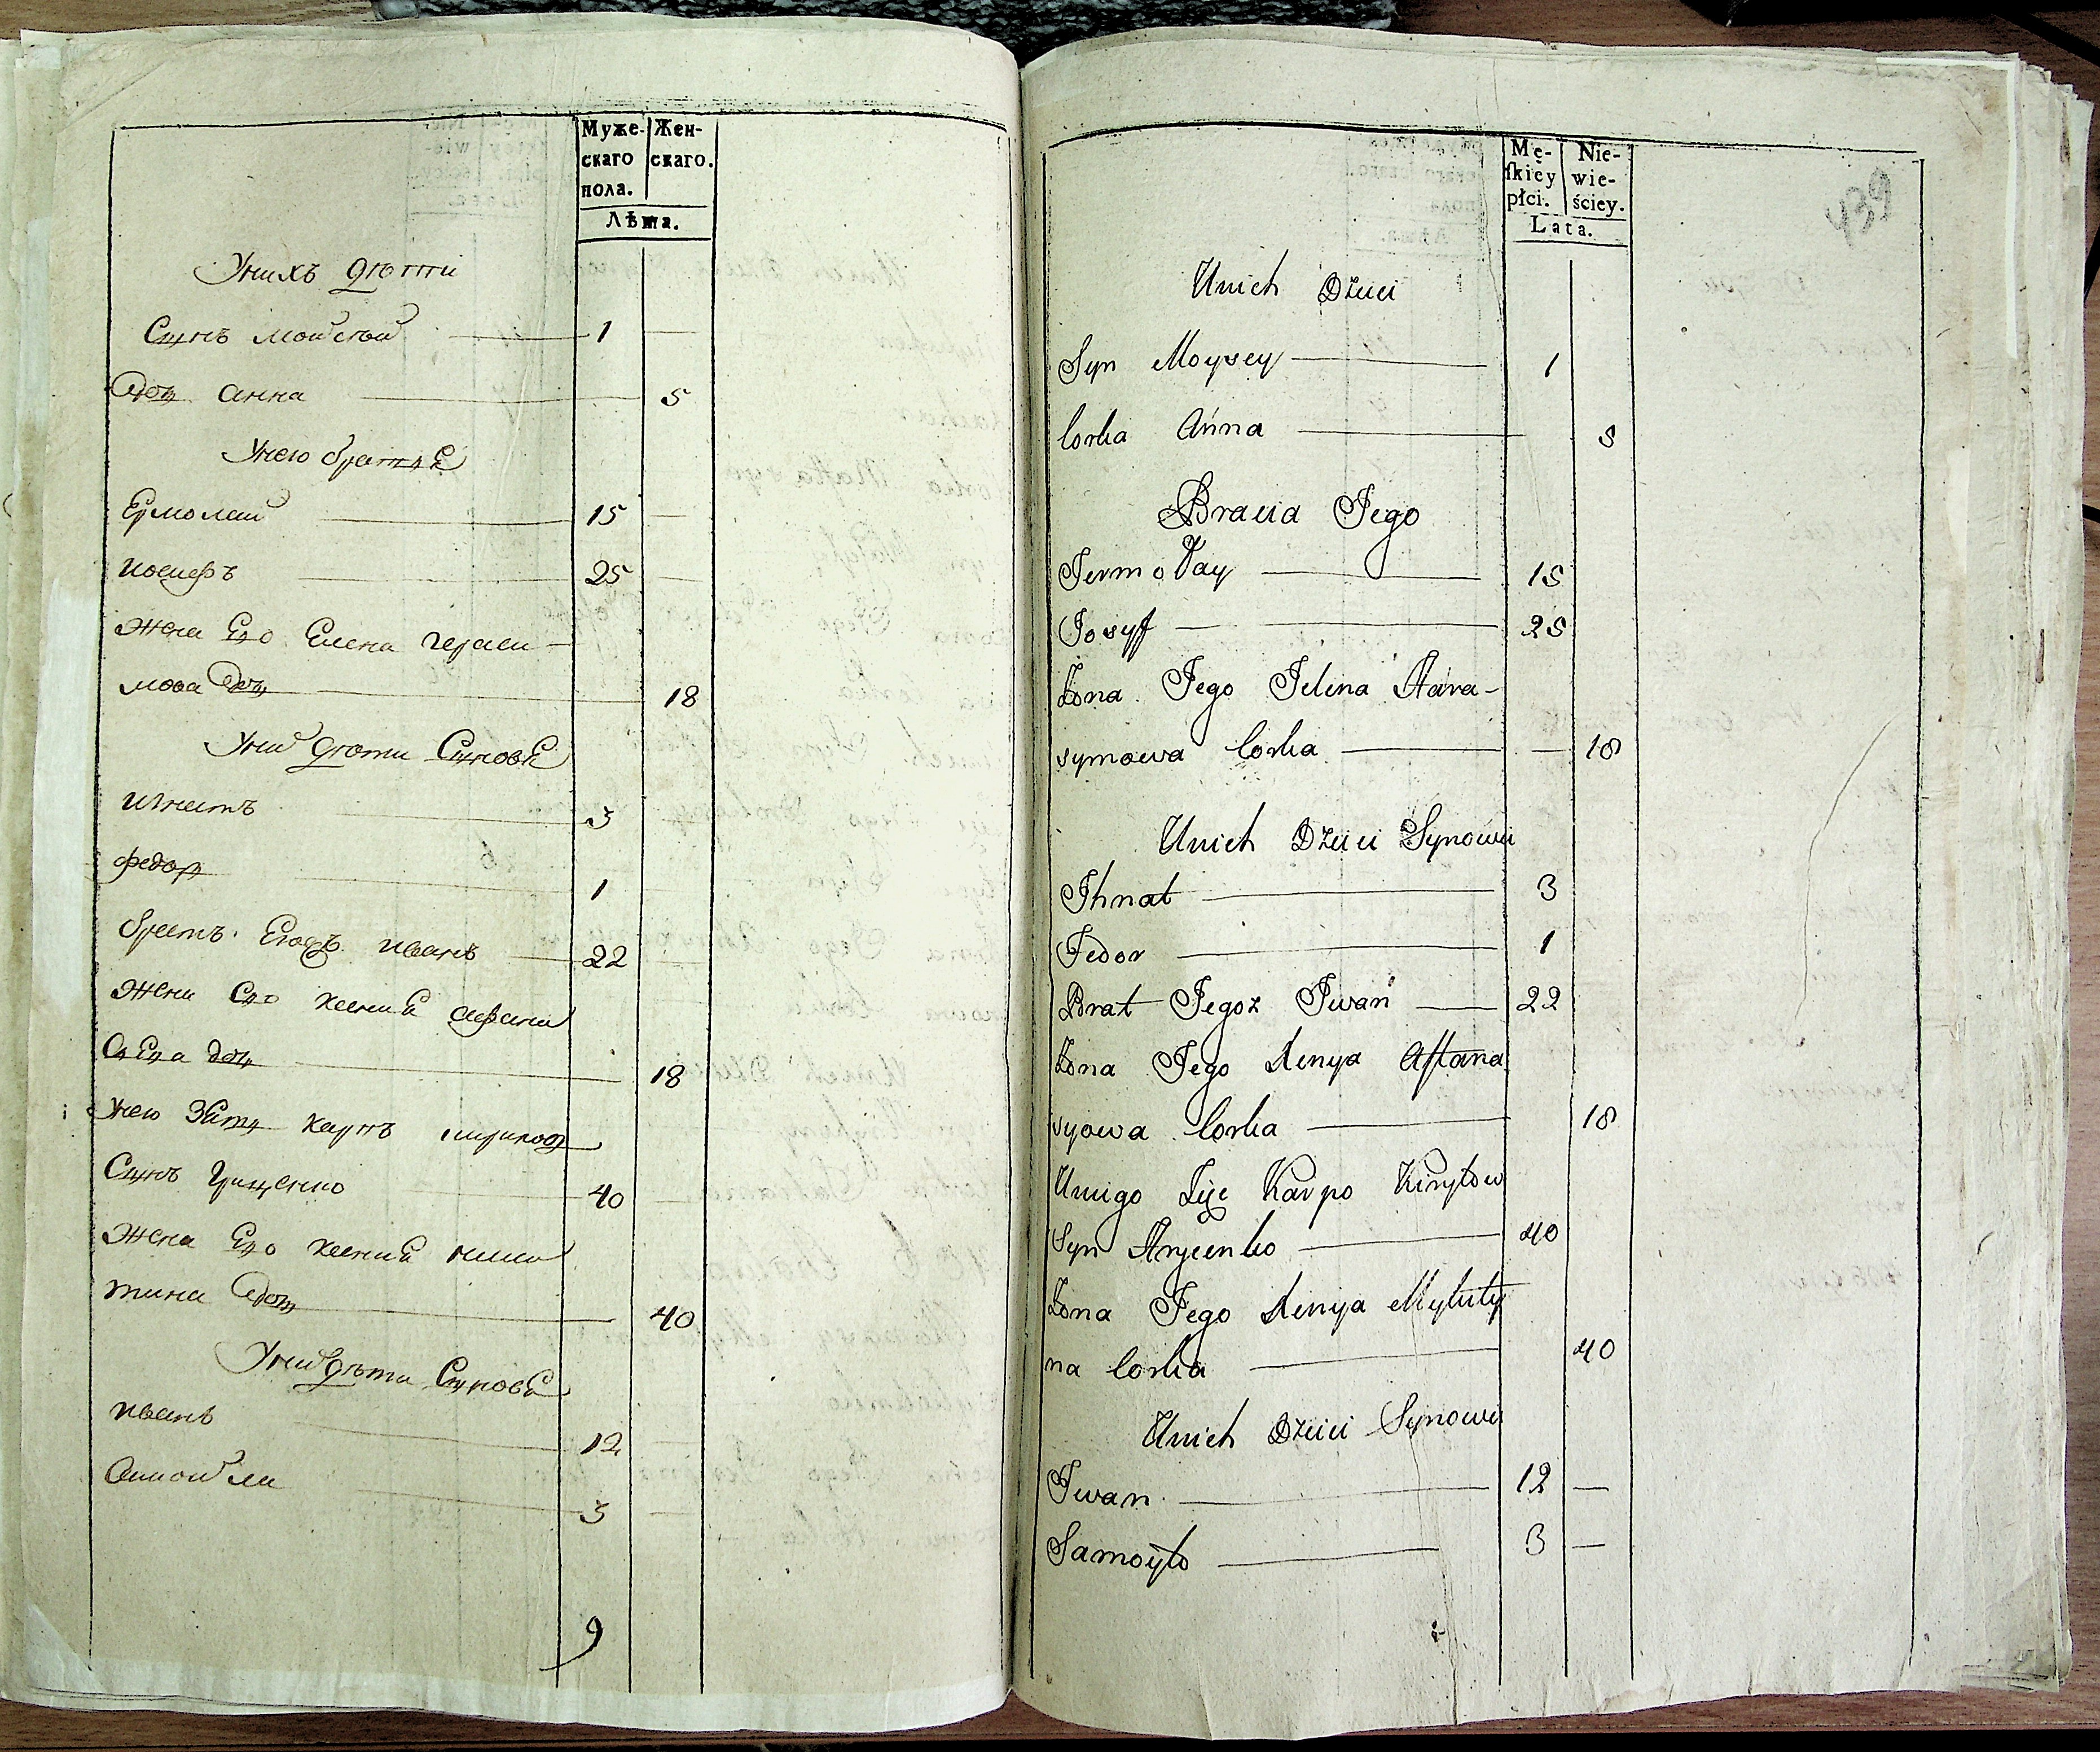 Муже-
скаго
пола.
Жен-
скаго.
Лѣта.
Унихъ дѣтти
Сынъ Мойсей 1
Доч Анна 5
Унего братья
Ермолай 15
Иосифъ 25
Жена Его Елена Гераси-
мова Доч 18
Уних дѣти Сыновя
Игнатъ 3
Федор 1
братъ Егожъ Иванъ 22
Жена Его Ксения Афана
сьева доч 18
Унего Зять Карпъ
Сынъ Грищенко 40
Жена Его Ксения Ники
тина Доч 40
Уних дѣти Сыновя
Иванъ 12
Самойла 3
9
Mę-
ſkiey
płci.
Nie-
wie-
ściey.
Lata.
439
Unich Dzieci
Syn Moysey 1
Corka Anna 5
Bracia Jego
Jermołay 15
Josyf 25
Żona Jego Jelena Hara-
symowa Corka 18
Unich Dzieci Synowie
Ihnat 3
Fedor 1
Brat Jegoż Iwan 22
Żona Jego Xenya Aftana
syowa Corka 18
Uniego Zięć Karpo Kiryłow
Syn Hrycenko 40
Żona Jego Xenya Mykity
na Corka 40
Unich Dzieci Synowie
Iwan 12
Samoyło 3